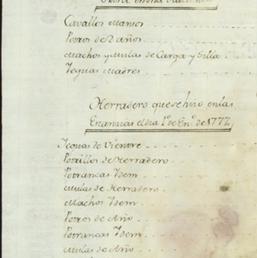 Cavallos mansos
Potros de 2 años
Machos y mulas de Carga y Silla
Yeguas madres
Herradero que se hizo en las
Estancias el dia 1º de Enº de 1772
Yeguas de Vientre
Potrillos de Herradero
Potrancas Idem
Mulas de Herradero
Machos Idem
Potros de Año
Potrancas Idem
Mulas de Año